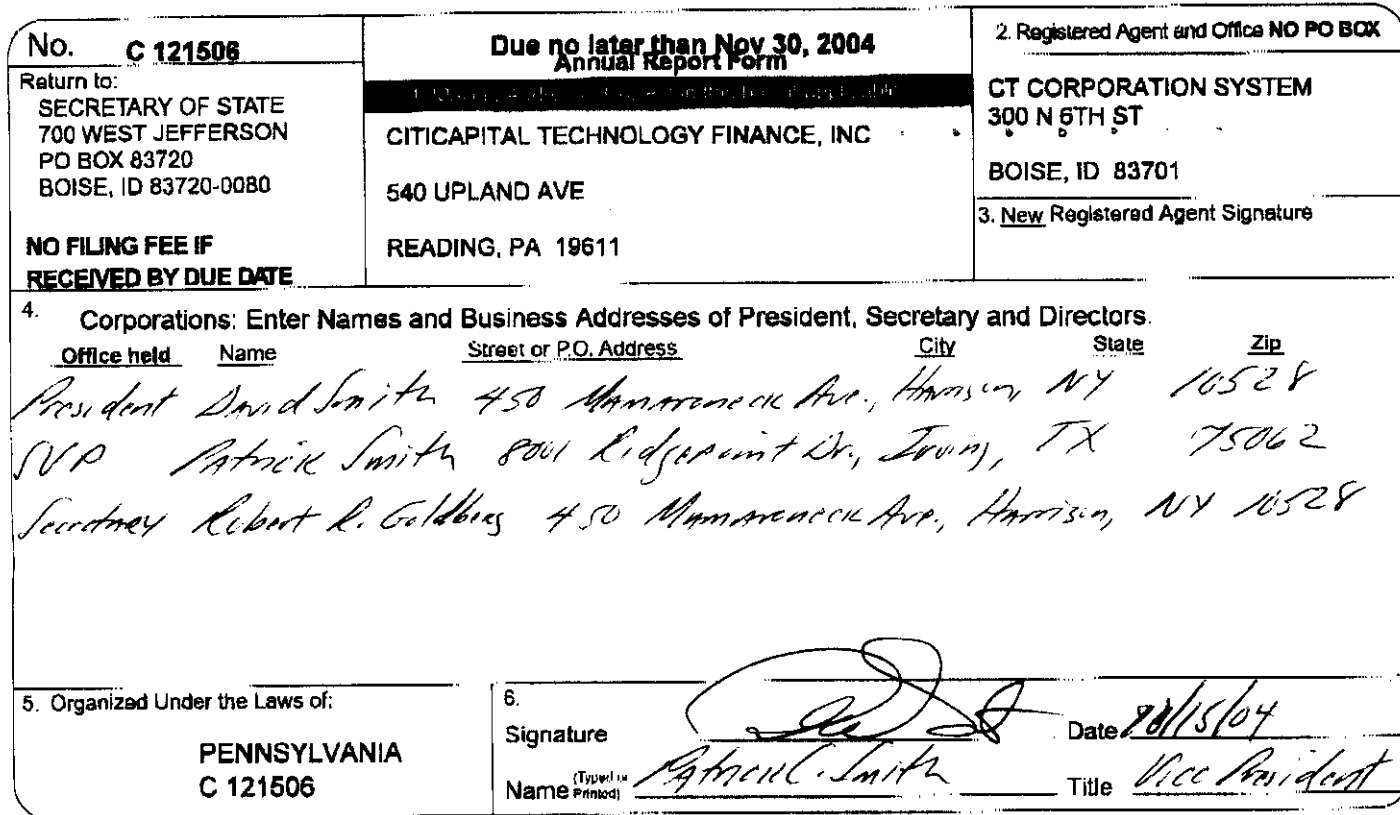 No. C 121506
Return to:
SECRETARY OF STATE
700 WEST JEFFERSON
PO BOX 83720
BOISE, ID 83720-0080
NO FILING FEE IF
RECEIVED BY DUE DATE
Due no later than Nov 30, 2004
Annual Report Form
CITICAPITAL TECHNOLOGY FINANCE, INC
540 UPLAND AVE
READING, PA 19611
2. Registered Agent and Office NO PO BOX
CT CORPORATION SYSTEM
300 N 6TH ST
BOISE, ID 83701
3. New Registered Agent Signature
4. Corporations: Enter Names and Business Addresses of President, Secretary and Directors.
Office held Name Street or P.O. Address City State Zip
President David Smith 450 Mamaroneck Ave., Harrison, NY 10528
SVP Patrick Smith 8001 Ridgepoint Dr., Irving, TX 75062
Secretary Robert R. Goldberg 450 Mamaroneck Ave., Harrison, NY 10528
5. Organized Under the Laws of:
PENNSYLVANIA
C 121506
6.
Signature Date /15/04
Name (Typed or Printed) Patrick C. Smith Title Vice President